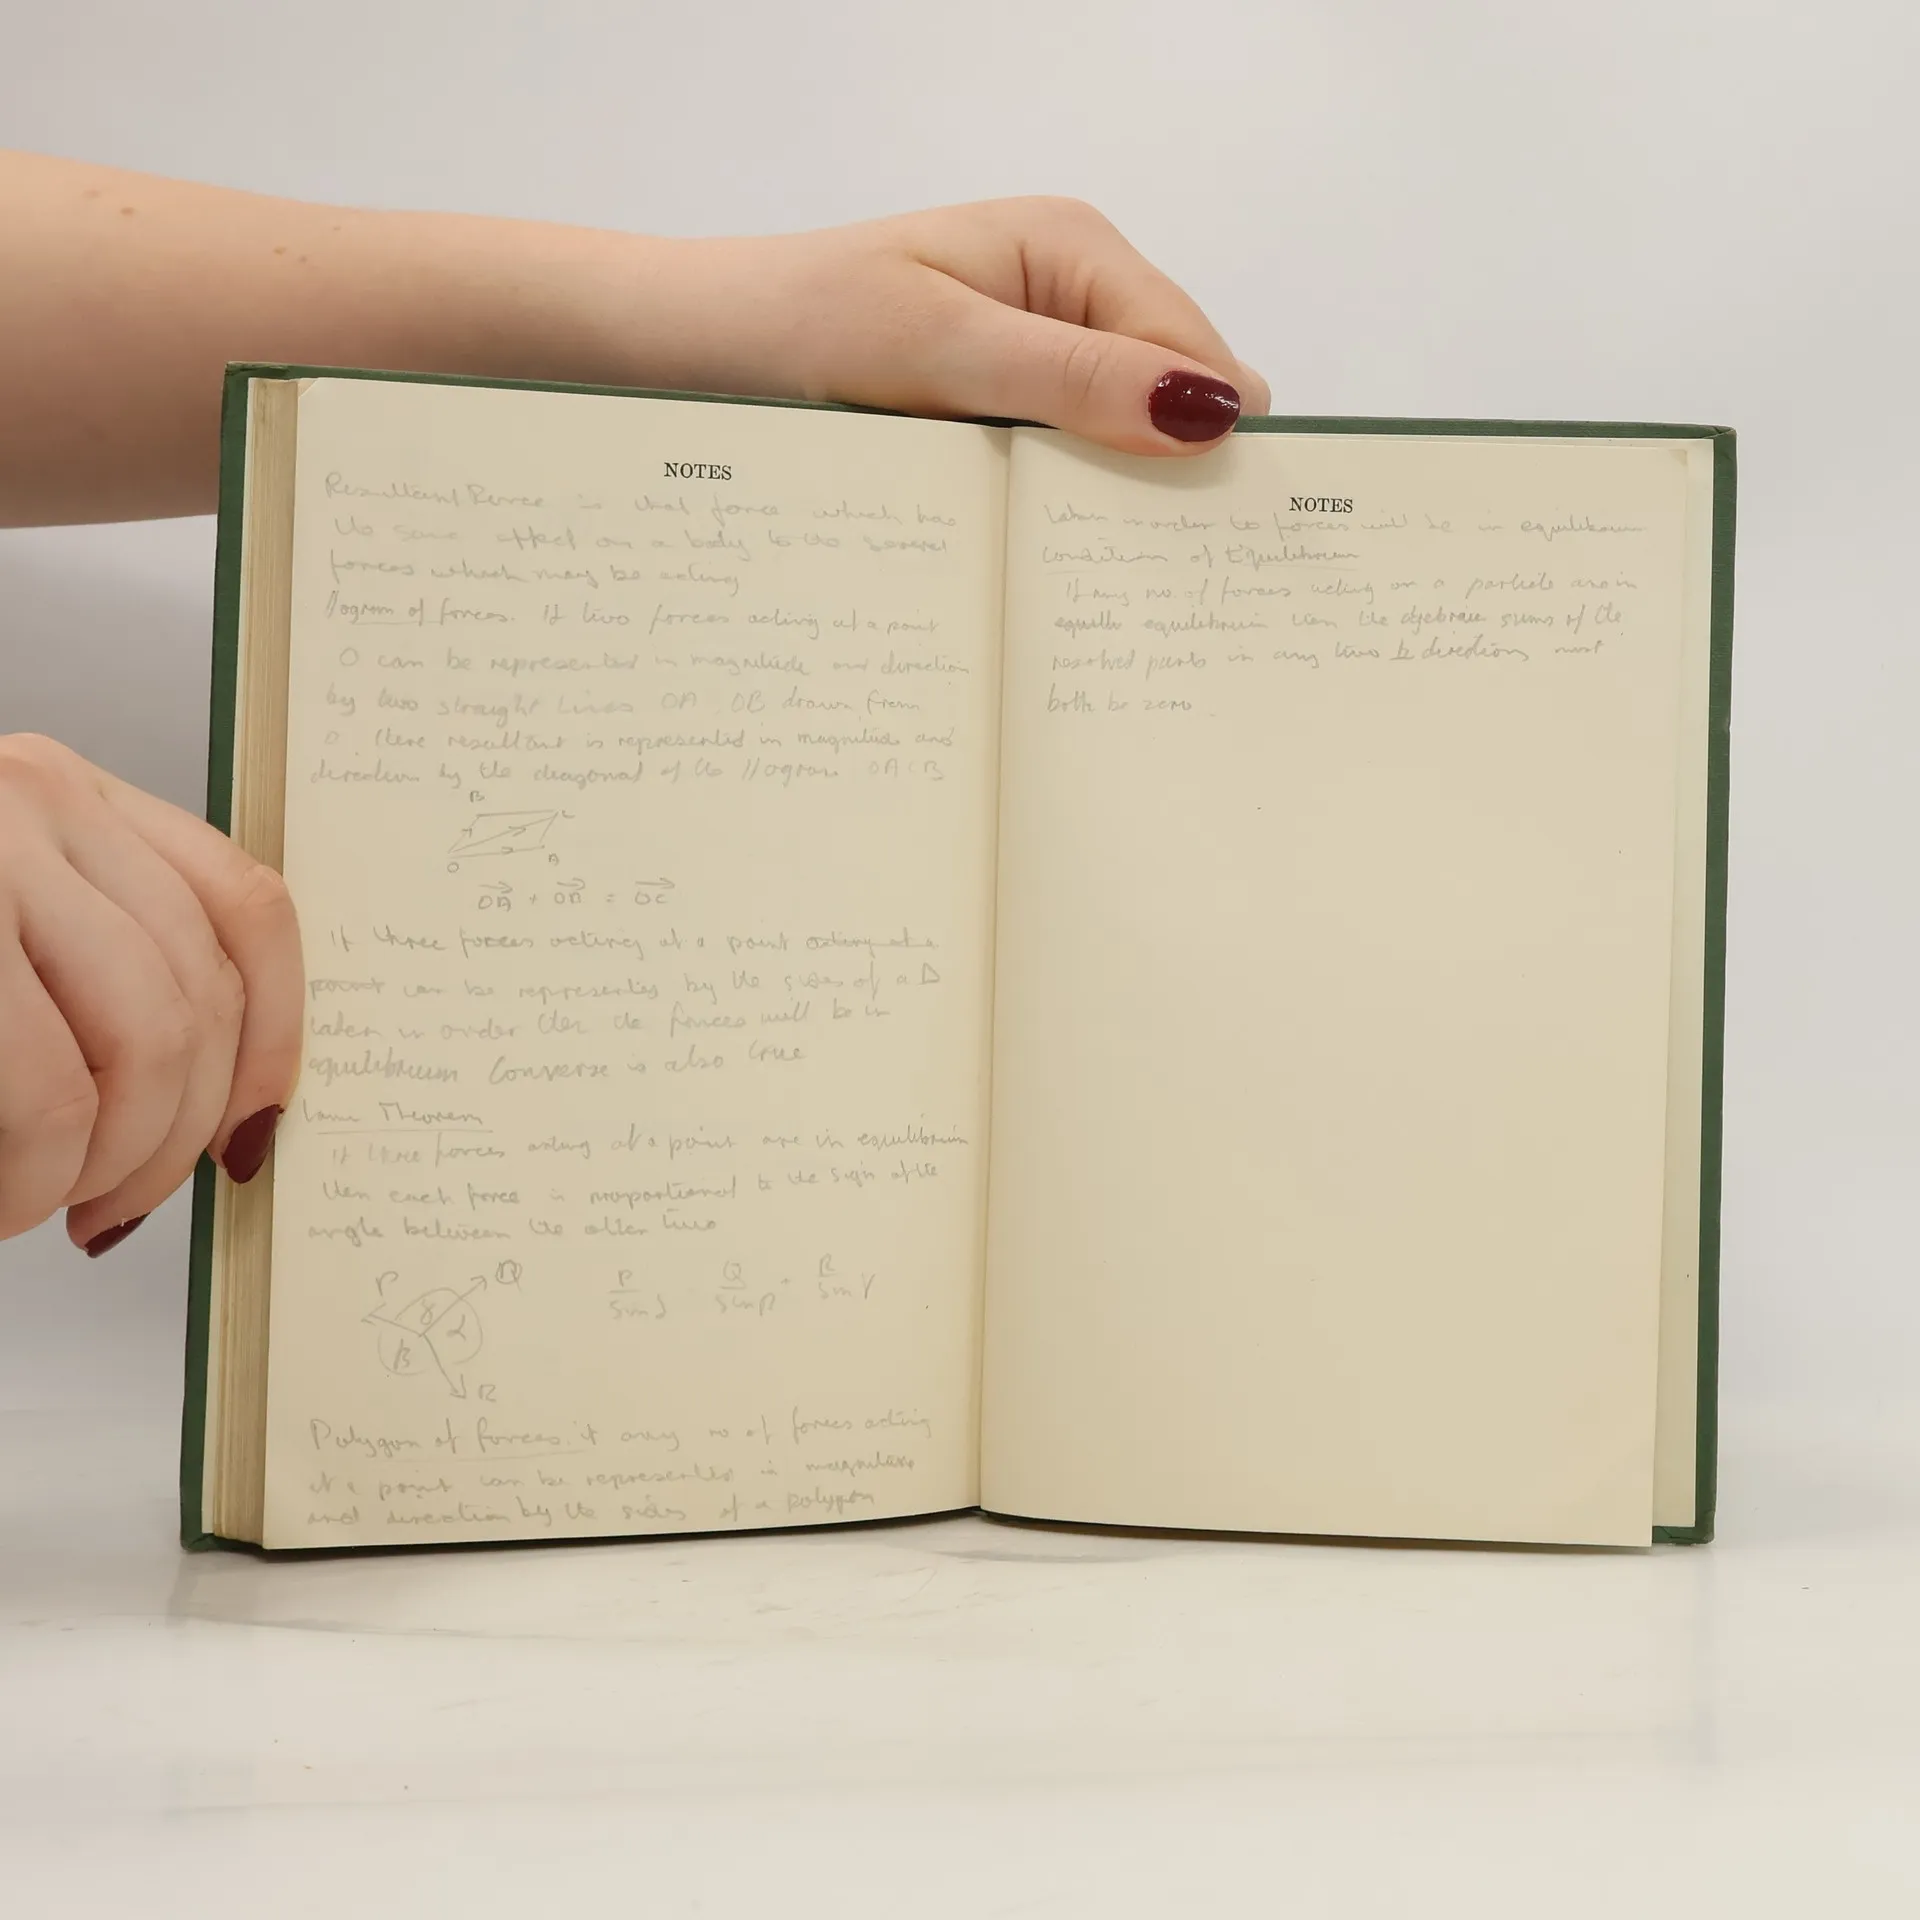 NOTES
Resultant Force is that force which has
the same effect on a body to the several
forces which may be acting
//ogram of forces. If two forces acting at a point
O can be represented in magnitude and direction
by two straight lines OA, OB drawn from
O. there resultant is represented in magnitude and
direction by the diagonal of the //ogram OACB
B C
O A
OA + OB = OC
If three forces acting at a point acting at a
point can be represented by the sides of a Δ
taken in order then the forces will be in
equilibrium Converse is also true
Lami Theorem
If three forces acting at a point are in equilibrium
then each force is proportional to the sign of the
angle between the other two
P Q
γ α
β
R
P/sin α = Q/sin β = R/sin γ
Polygon of forces. if any no of forces acting
at a point can be represented in magnitude
and direction by the sides of a polygon
NOTES
taken in order to forces will be in equilibrium
Condition of Equilibrium
If any no. of forces acting on a particle are in
equilb equilibrium then the algebraic sums of the
resolved parts in any two directions must
both be zero.